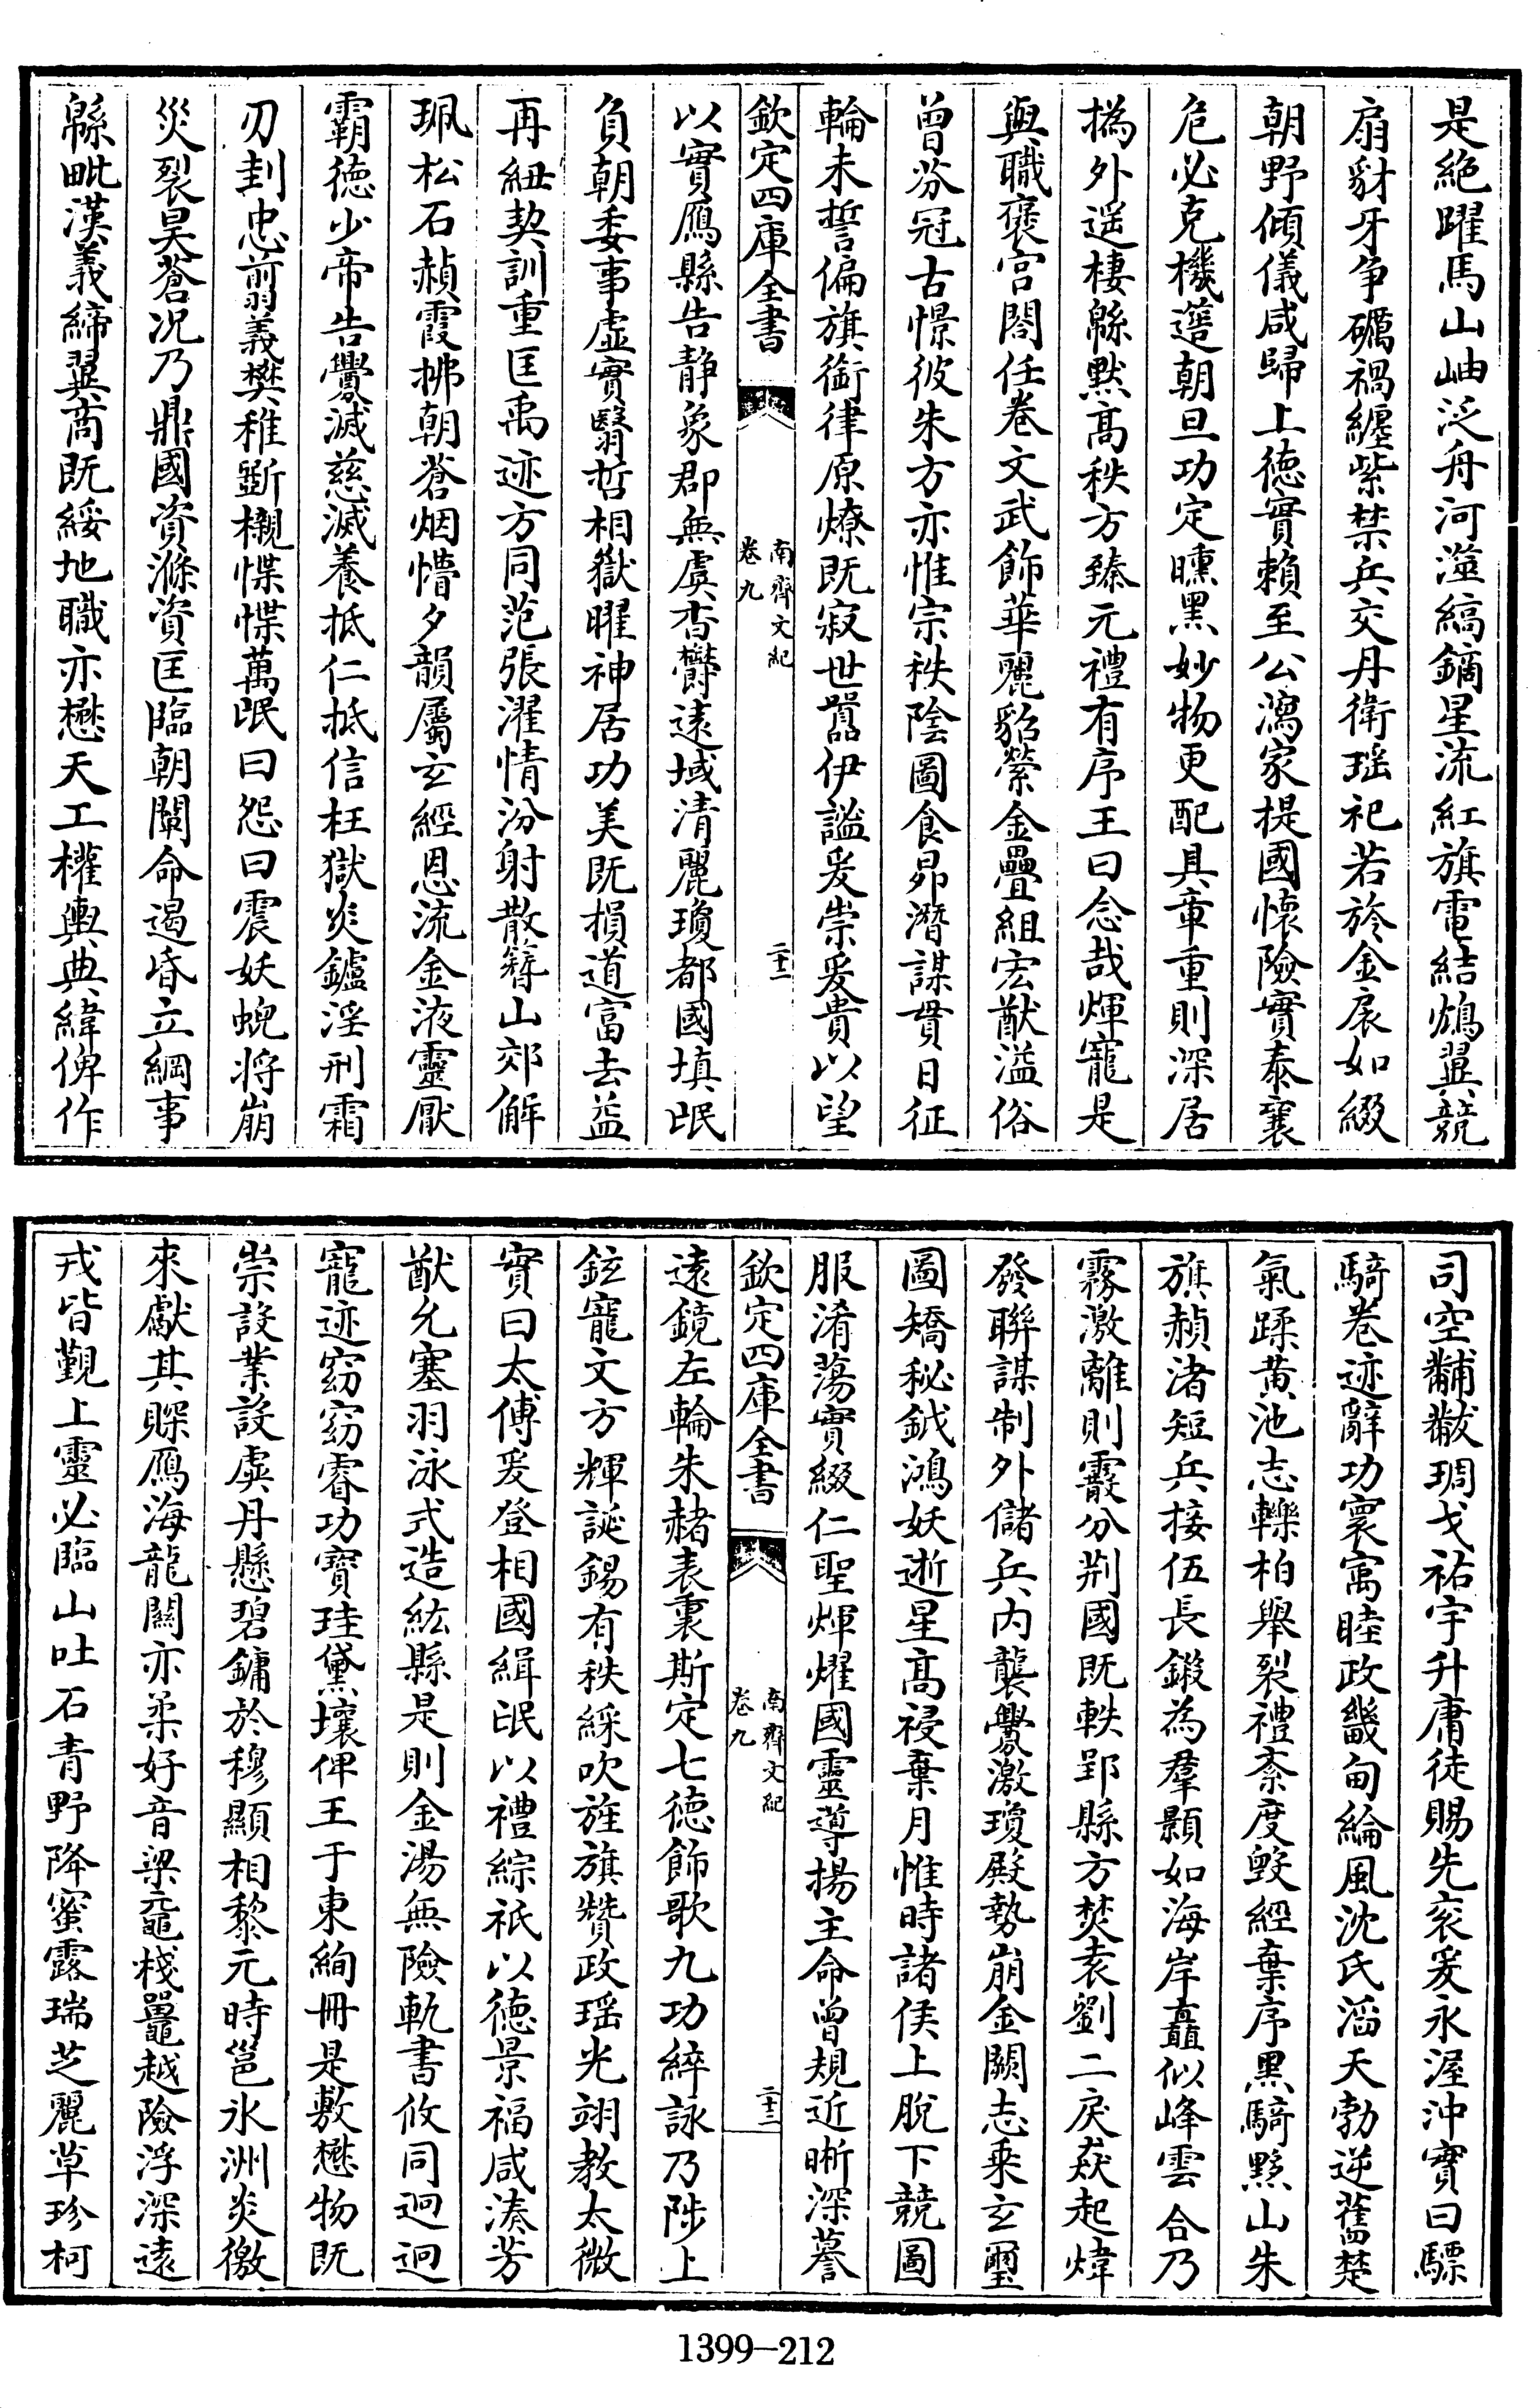 是絶躍馬山岫泛舟河澨縞鏑星流紅旗電結鴆翼競
扇豺牙争礪禍纒紫禁兵交丹衛瑶祀若於金扆如綴
朝野傾儀咸歸上徳實賴至公漓家提國懷險實泰襄
危必克機簉朝旦功定曛黑妙物更配具章重則深居
撝外遥棲緜黙髙秩方臻元禮有序王曰念哉煇寵是
與職褒宫閤任巻文武飾華麗貂縈金疊組宏猷溢俗
曾芬冠古憬彼朱方亦惟宗秩陰圖食昴潛謀貫日征
輪未誓偏旗衘律原燎既寂世嚚伊謐爰崇爰貴以望
欽定四庫全書 南齊文紀 卷九 二十二
以實鴈縣告静象郡無虞杳欝遠域清麗瓊都國填氓
負朝委事虚實翳哲相獄曜神居功美既損道富去益
再紐契訓重匡禹迹方同范張濯情汾射散簪山郊解
珮松石赬霞拂朝蒼烟懵夕韻屬玄經恩流金液靈厭
霸徳少帝告舋滅慈滅養抵仁抵信枉獄炎鑪淫刑霜
刃刲忠翦義樊稚斵櫬惵惵萬氓曰怨曰震妖蜺將崩
災裂昊蒼况乃鼎國資滌資匡臨朝闡命遏昏立綱事
緜毗漢義締翼商既綏地職亦懋天工櫂輿典緯俾作
司空黼黻琱戈祐宇升庸徒賜先衮爰永渥沖實曰驃
騎巻迹辭功寰寓睦政畿甸綸風沈氏滔天勃逆舊楚
氣蹂黄池志轢柏舉裂禮紊度毁經棄序黒騎黟山朱
旗赬渚短兵接伍長鍛為羣顥如海岸矗似峰雲合乃
霧激離則霰分荆國既軼郢縣方焚袁劉二戾猋起煒
發聯謀制外儲兵内襲舋激瓊殿勢崩金闕志乘玄璽
圖矯秘鉞鴻妖逝星髙祲棄月惟時諸侯上脱下競圖
服淆蕩實綴仁聖煇燿國靈導揚主命曽規近晰深謩
欽定四庫全書 南齊文紀 卷九 二十三
遠鏡左輪朱赭表裏斯定七徳飾歌九功綷詠乃陟上
鉉寵文方輝誕錫有秩綵吹旌旗贊政瑶光翊教太微
實曰太傅爰登相國緝氓以禮綜祇以徳景福咸湊芳
猷允塞羽泳式造紘縣是則金湯無險軌書攸同迥迥
寵迹窈窈睿功寳珪黛壤俾王于東絢冊是敷懋物既
崇設業設虡丹懸碧鏞於穆顯相黎元時邕氷洲炎徼
來獻其賝鴈海龍闗亦柔好音梁黿棧鼉越險浮深遠
戎皆覲上靈必臨山吐石青野降蜜露瑞芝麗草珍柯
1399—212